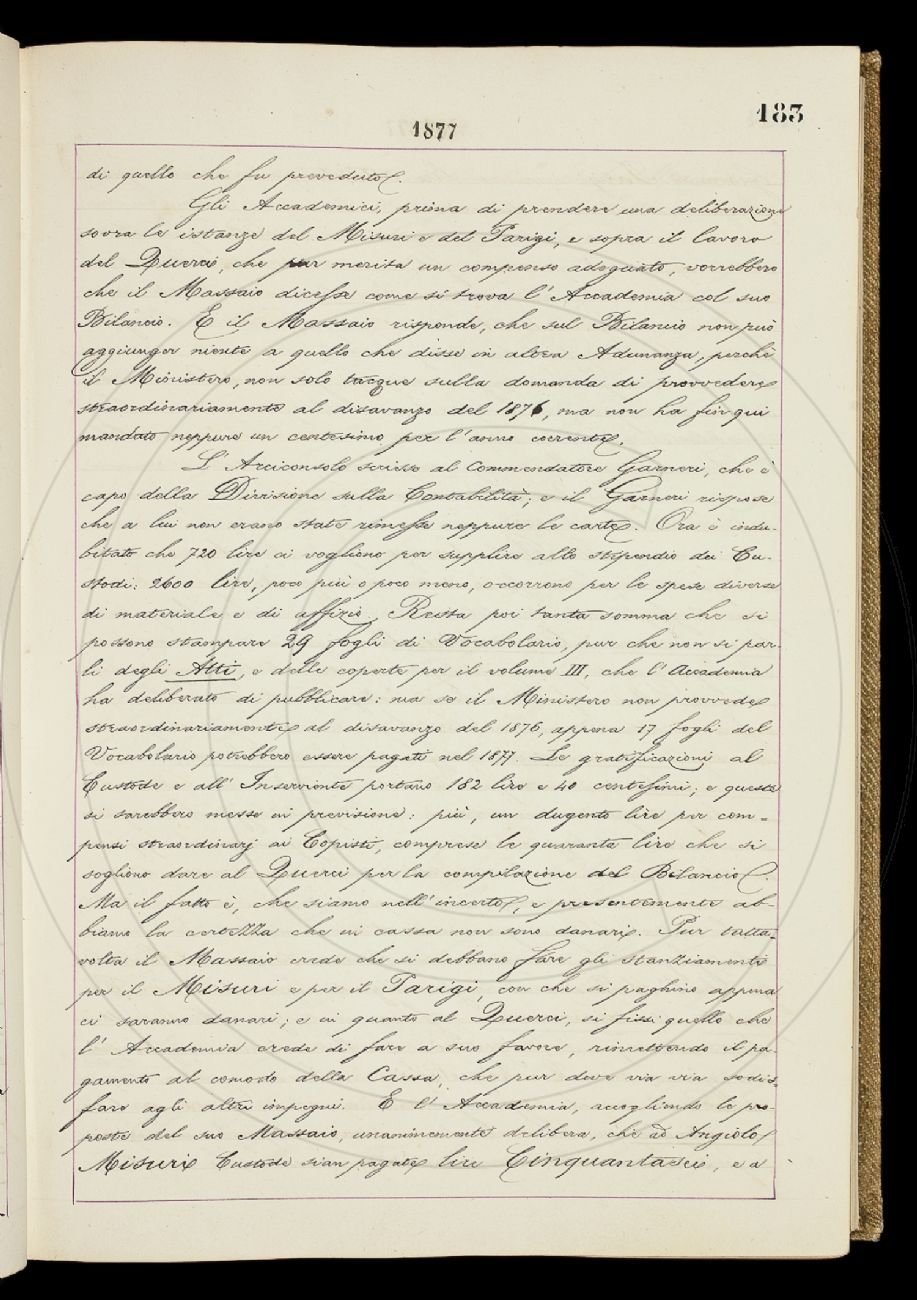 183
1877
di quello che fu preveduto.
Gli Accademici, prima di prendere una deliberazione
sovra le istanze del Misuri e del Parigi, e sopra il lavoro
del Querci, che pur merita un compenso adeguato, vorrebbero
che il Massaio dicesse come si trova l'Accademia col suo
Bilancio. E il Massaio risponde, che sul Bilancio non può
aggiunger niente a quello che disse in altra Adunanza, perchè
il Ministero, non solo tacque sulla domanda di provvedere
straordinariamente al disavanzo del 1876, ma non ha fin qui
mandato neppure un centesimo per l'anno corrente.
L'Arciconsolo scrisse al Commendatore Garneri, che è
capo della Divisione sulla Contabilità; e il Garneri rispose
che a lui non erano state rimesse neppure le carte. Ora è indu-
bitato che 720 lire ci vogliono per supplire allo stipendio dei Cu-
stodi: 2600 lire, poco più o poco meno, occorrono per le spese diverse
di materiale e di uffizio. Resta poi tanta somma che si
possono stampare 29 fogli di Vocabolario, pur che non si par-
li degli Atti, e delle coperte per il volume III, che l'Accademia
ha deliberato di pubblicare: ma se il Ministero non provvede
straordinariamente al disavanzo del 1876, appena 17 fogli del
Vocabolario potrebbero essere pagati nel 1877. Le gratificazioni al
Custode e all'Inserviente portano 182 lire e 40 centesimi; e queste
si sarebbero messe in previsione: più, un dugento lire per com-
pensi straordinarj ai Copisti, comprese le quaranta lire che si
sogliono dare al Querci per la compilazione del Bilancio.
Ma il fatto è, che siamo nell'incerto, e presentemente ab-
biamo la certezza che in cassa non sono danari. Pur tutta-
volta il Massaio crede che si debbano fare gli stanziamenti
per il Misuri e per il Parigi, con che si paghino appena
ci saranno danari; e in quanto al Querci, si fissi quello che
l'Accademia crede di fare a suo favore, rimettendo il pa-
gamento al comodo della Cassa, che pur deve via via sodis-
fare agli altri impegni. E l'Accademia, accogliendo le pro-
poste del suo Massaio, unanimemente delibera, che ad Angiolo
Misuri Custode sian pagate lire Cinquantasei, e a